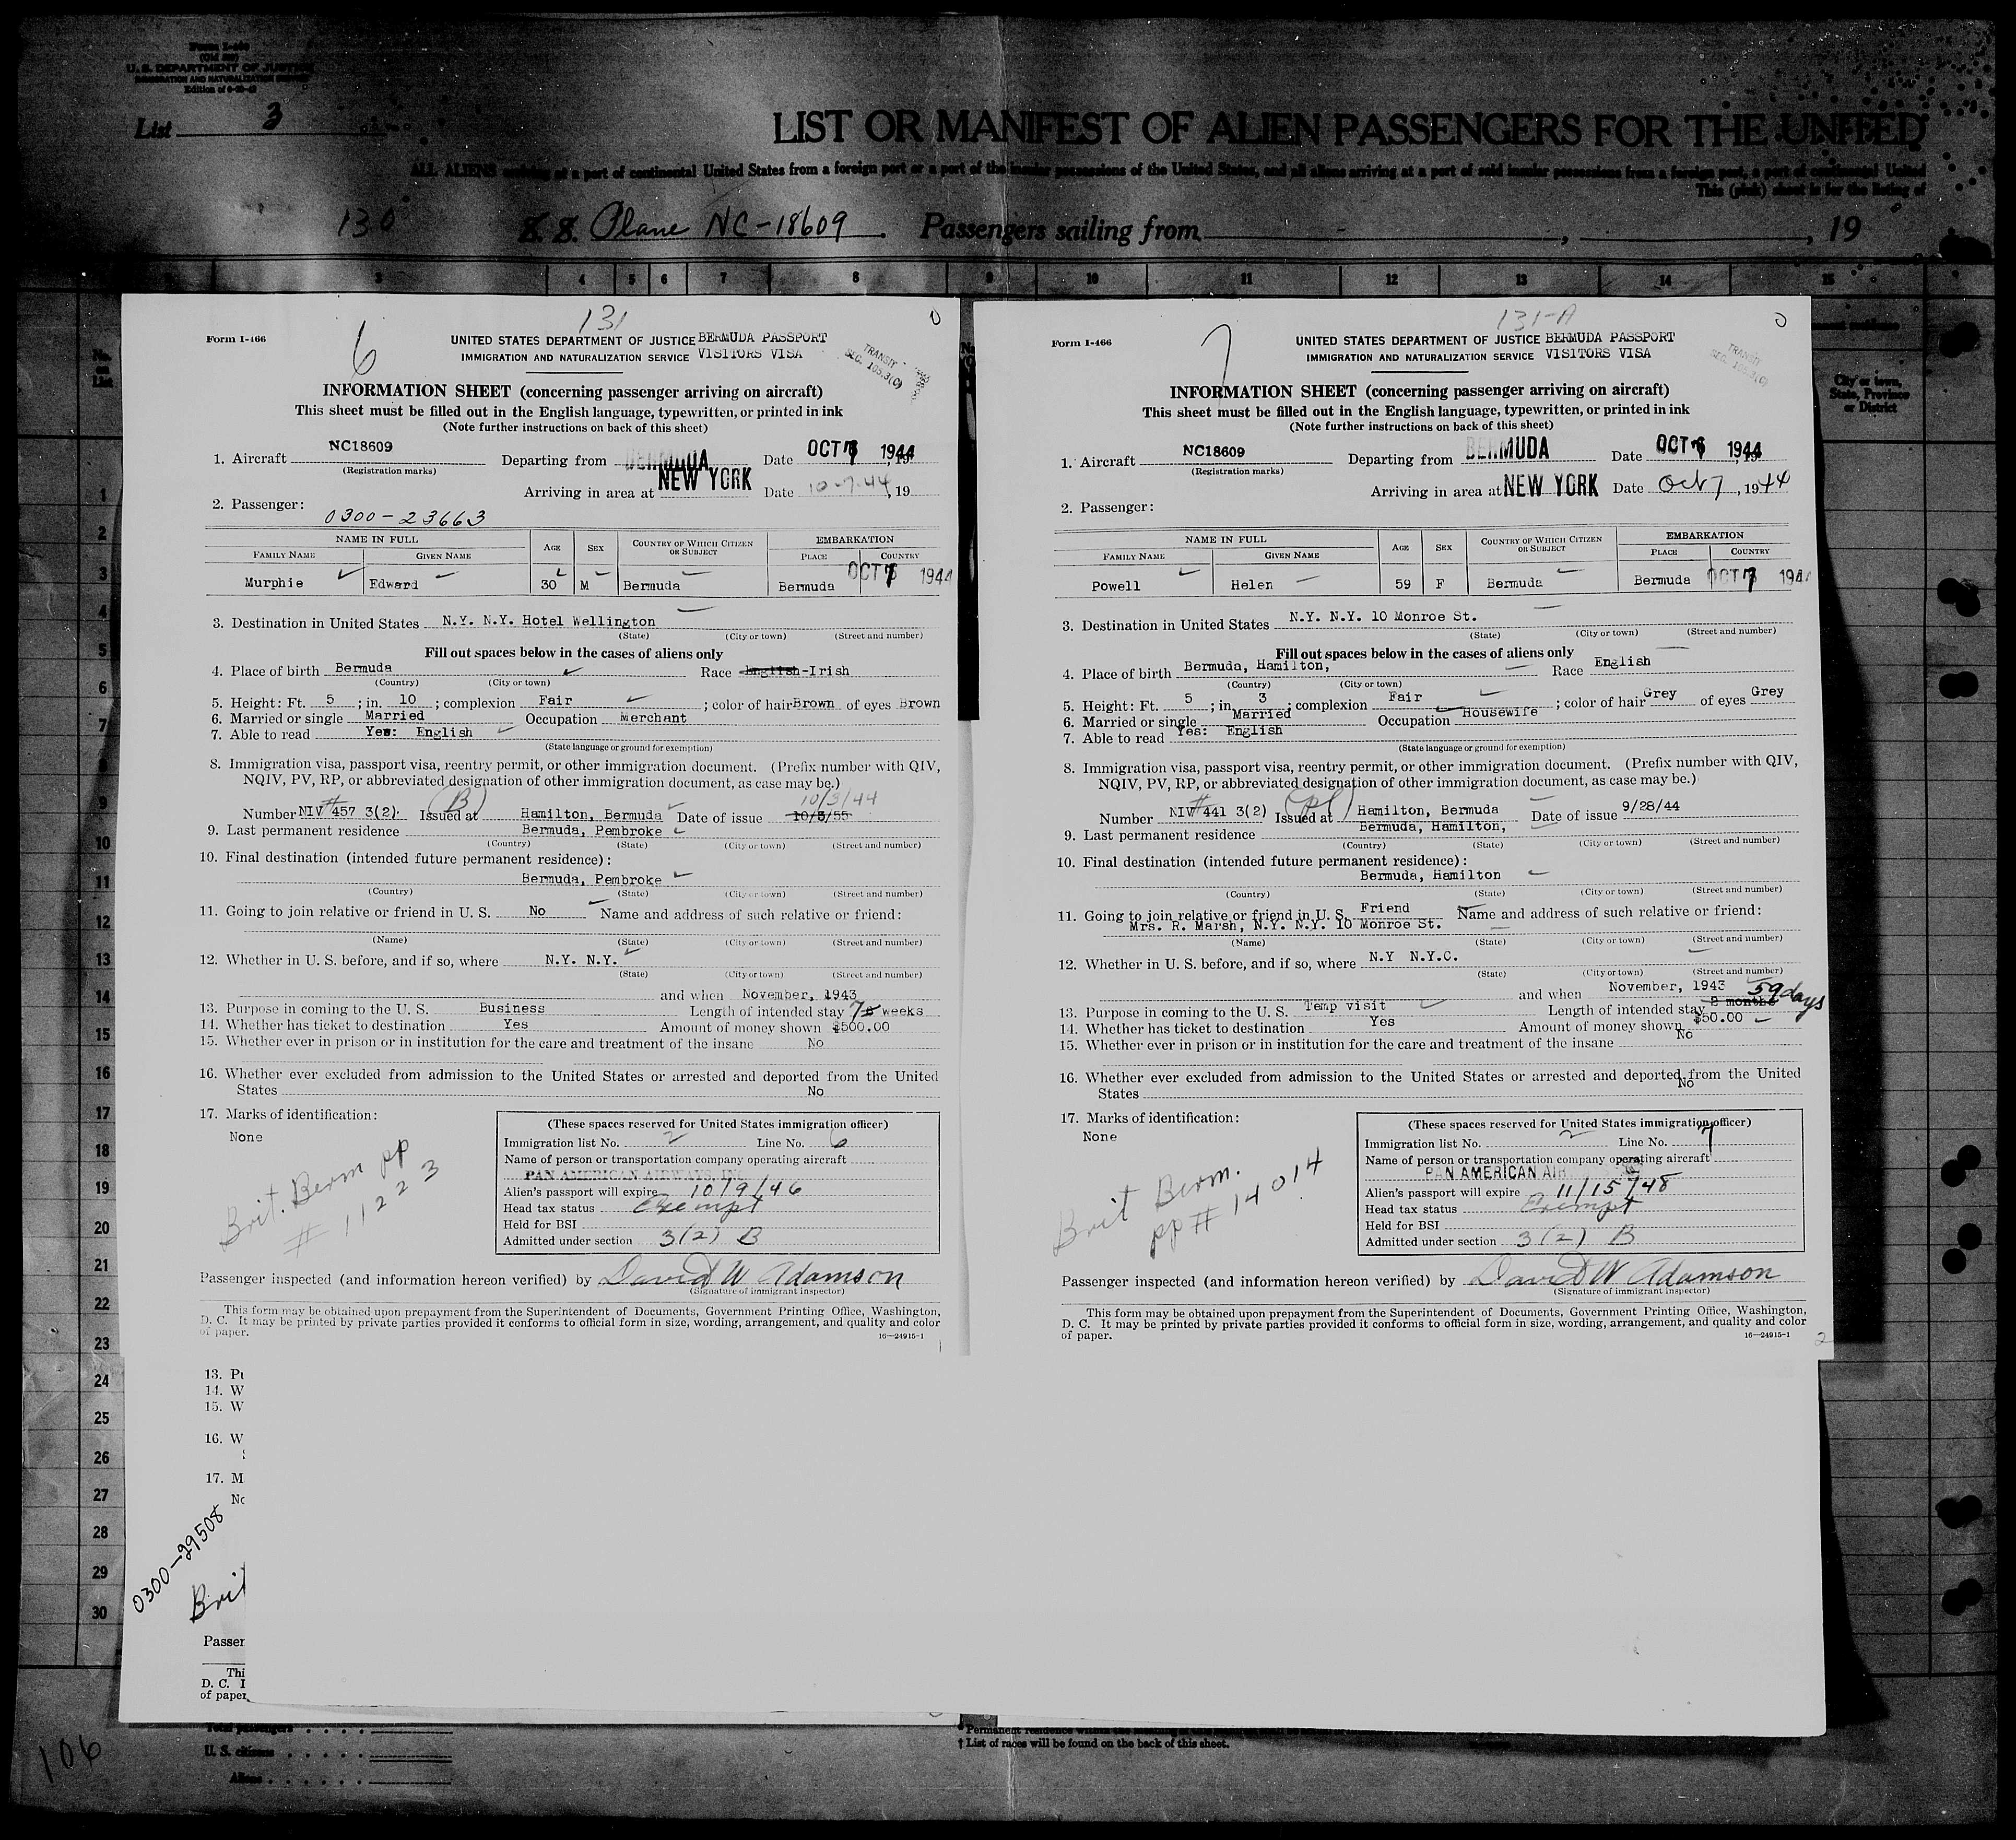 Form I-466
U. S. DEPARTMENT OF JUSTICE
IMMIGRATION AND NATURALIZATION SERVICE
List 3
LIST OR MANIFEST OF ALIEN PASSENGERS FOR THE UNITED
ALL ALIENS arriving at a port of continental United States from a foreign port or a port of the insular possessions of the United States, and all aliens arriving at a port of said insular possessions from a foreign port, a port of continental United
This (pink) sheet is for the listing of
130 S. S. Plane NC-18609. Passengers sailing from , , 19
3 4 5 6 7 8 9 10 11 12 13 14 15
No. on List
City or town, State, Province or District
1
2
3
4
5
6
7
8
9
10
11
12
13
14
15
16
17
18
19
20
21
22
23
24
25
26
27
28
29
30
131 0
Form I-466 6 UNITED STATES DEPARTMENT OF JUSTICE BERMUDA PASSPORT
IMMIGRATION AND NATURALIZATION SERVICE VISITORS VISA
TRANSIT
SEC. 105.3(C)
INFORMATION SHEET (concerning passenger arriving on aircraft)
This sheet must be filled out in the English language, typewritten, or printed in ink
(Note further instructions on back of this sheet)
1. Aircraft NC18609 Departing from BERMUDA Date OCT 7 1944, 19
(Registration marks)
Arriving in area at NEW YORK Date 10-7-44, 19
2. Passenger: 0300-23663
NAME IN FULL AGE SEX COUNTRY OF WHICH CITIZEN OR SUBJECT EMBARKATION
FAMILY NAME GIVEN NAME PLACE COUNTRY
OCT 7 1944
Murphie Edward 30 M Bermuda Bermuda
3. Destination in United States N.Y. N.Y. Hotel Wellington
(State) (City or town) (Street and number)
Fill out spaces below in the cases of aliens only
4. Place of birth Bermuda Race English-Irish
(Country) (City or town)
5. Height: Ft. 5 ; in. 10 ; complexion Fair ; color of hair Brown of eyes Brown
6. Married or single Married Occupation Merchant
7. Able to read Yes: English
(State language or ground for exemption)
8. Immigration visa, passport visa, reentry permit, or other immigration document. (Prefix number with QIV,
NQIV, PV, RP, or abbreviated designation of other immigration document, as case may be.)
(B) 10/3/44
Number NIV # 457 3(2). Issued at Hamilton, Bermuda Date of issue 10/3/55
9. Last permanent residence Bermuda, Pembroke
(Country) (State) (City or town) (Street and number)
10. Final destination (intended future permanent residence):
Bermuda, Pembroke
(Country) (State) (City or town) (Street and number)
11. Going to join relative or friend in U. S. No Name and address of such relative or friend:
(Name) (State) (City or town) (Street and number)
12. Whether in U. S. before, and if so, where N.Y. N.Y.
(State) (City or town) (Street and number)
and when November, 1943
13. Purpose in coming to the U. S. Business Length of intended stay 7 weeks
14. Whether has ticket to destination Yes Amount of money shown $500.00
15. Whether ever in prison or in institution for the care and treatment of the insane No
16. Whether ever excluded from admission to the United States or arrested and deported from the United
States No
17. Marks of identification:
None
Brit. Berm pp
# 11223
(These spaces reserved for United States immigration officer)
Immigration list No. 2 Line No. 6
Name of person or transportation company operating aircraft
PAN AMERICAN AIRWAYS, INC
Alien's passport will expire 10/9/46
Head tax status Exempt
Held for BSI
Admitted under section 3(2) B
Passenger inspected (and information hereon verified) by David W Adamson
(Signature of immigrant inspector)
This form may be obtained upon prepayment from the Superintendent of Documents, Government Printing Office, Washington,
D. C. It may be printed by private parties provided it conforms to official form in size, wording, arrangement, and quality and color
of paper. 16—24915-1
131-A 0
Form I-466 7 UNITED STATES DEPARTMENT OF JUSTICE BERMUDA PASSPORT
IMMIGRATION AND NATURALIZATION SERVICE VISITORS VISA
TRANSIT
SEC. 105.3(C)
INFORMATION SHEET (concerning passenger arriving on aircraft)
This sheet must be filled out in the English language, typewritten, or printed in ink
(Note further instructions on back of this sheet)
1. Aircraft NC18609 Departing from BERMUDA Date OCT 6 1944, 19
(Registration marks)
Arriving in area at NEW YORK Date Oct 7, 1944
2. Passenger:
NAME IN FULL AGE SEX COUNTRY OF WHICH CITIZEN OR SUBJECT EMBARKATION
FAMILY NAME GIVEN NAME PLACE COUNTRY
Powell Helen 59 F Bermuda Bermuda OCT 7 1944
3. Destination in United States N.Y. N.Y. 10 Monroe St.
(State) (City or town) (Street and number)
Fill out spaces below in the cases of aliens only
4. Place of birth Bermuda, Hamilton, Race English
(Country) (City or town)
5. Height: Ft. 5 ; in. 3 ; complexion Fair ; color of hair Grey of eyes Grey
6. Married or single Married Occupation Housewife
7. Able to read Yes: English
(State language or ground for exemption)
8. Immigration visa, passport visa, reentry permit, or other immigration document. (Prefix number with QIV,
NQIV, PV, RP, or abbreviated designation of other immigration document, as case may be.)
Number NIV # 441 3(2) Issued at Hamilton, Bermuda Date of issue 9/28/44
9. Last permanent residence Bermuda, Hamilton,
(Country) (State) (City or town) (Street and number)
10. Final destination (intended future permanent residence):
Bermuda, Hamilton
(Country) (State) (City or town) (Street and number)
11. Going to join relative or friend in U. S. Friend Name and address of such relative or friend:
Mrs. R. Marsh, N.Y. N.Y. 10 Monroe St.
(Name) (State) (City or town) (Street and number)
12. Whether in U. S. before, and if so, where N.Y N.Y.C.
(State) (City or town) (Street and number)
and when November, 1943
59 days
13. Purpose in coming to the U. S. Temp visit Length of intended stay 2 months
14. Whether has ticket to destination Yes Amount of money shown $50.00
15. Whether ever in prison or in institution for the care and treatment of the insane No
16. Whether ever excluded from admission to the United States or arrested and deported from the United
States No
17. Marks of identification:
None
Brit Berm.
pp # 14014
(These spaces reserved for United States immigration officer)
Immigration list No. 2 Line No. 7
Name of person or transportation company operating aircraft
PAN AMERICAN AIR
Alien's passport will expire 11/15/48
Head tax status Exempt
Held for BSI
Admitted under section 3(2) B
Passenger inspected (and information hereon verified) by David W Adamson
(Signature of immigrant inspector)
This form may be obtained upon prepayment from the Superintendent of Documents, Government Printing Office, Washington,
D. C. It may be printed by private parties provided it conforms to official form in size, wording, arrangement, and quality and color
of paper. 16—24915-1
2
13. Pu
14. W
15. W
16. W
17. M
No
0300-29508
Brit
Passen
Thi
D. C. I
of paper
Total passengers
U. S. citizens
Aliens
106
† List of races will be found on the back of this sheet.